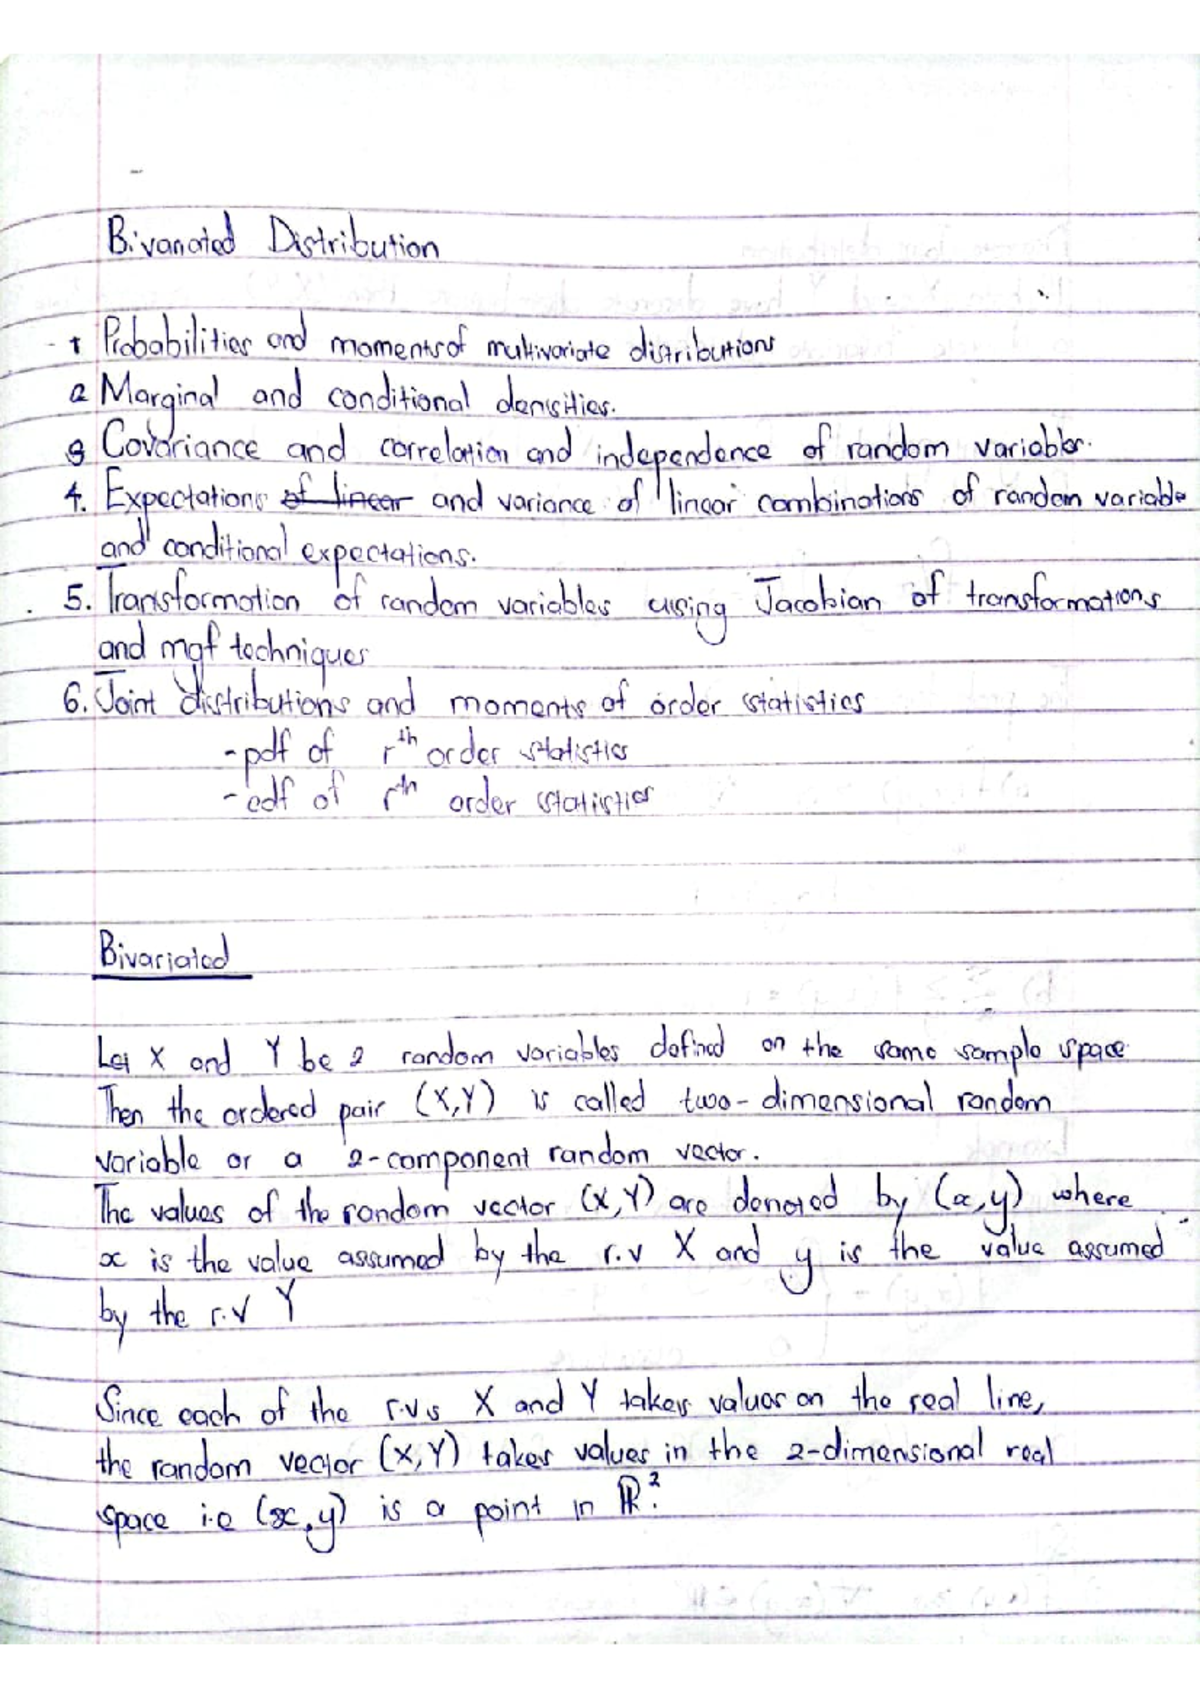 Bivariated Distribution
1 Probabilities and moments of multivariate distributions
2 Marginal and conditional densities.
3 Covariance and correlation and independence of random variables.
4. Expectations of linear and variance of linear combinations of random variable
and conditional expectations.
5. Transformation of random variables using Jacobian of transformations
and mgf techniques
6. Joint distributions and moments of order statistics
- pdf of rth order statistics
- cdf of rth order statistics
Bivariated
Let X and Y be 2 random variables defined on the same sample space.
Then the ordered pair (X,Y) is called two-dimensional random
variable or a 2-component random vector.
The values of the random vector (X,Y) are denoted by (x,y) where
x is the value assumed by the r.v X and y is the value assumed
by the r.v Y
Since each of the r.vs X and Y takes values on the real line,
the random vector (X,Y) takes values in the 2-dimensional real
space i.e (x,y) is a point in ℝ².